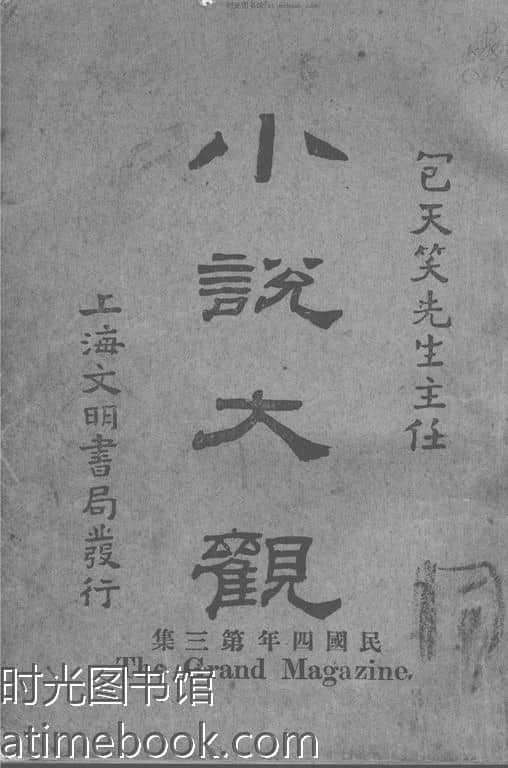 时光图书馆 at atimebook.com
包天笑先生主任
小說大觀
上海文明書局發行
民國四年第三集
The Grand Magazine.
时光图书馆
atimebook.com